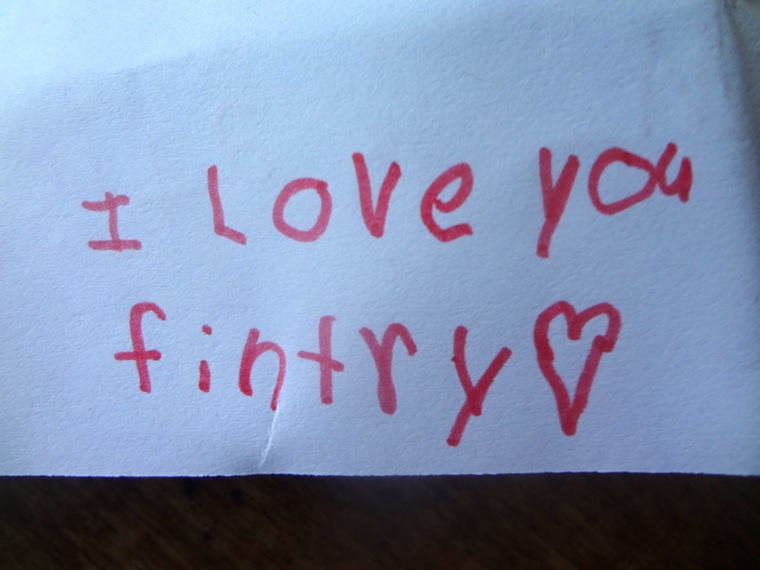 I Love you
fintry♡